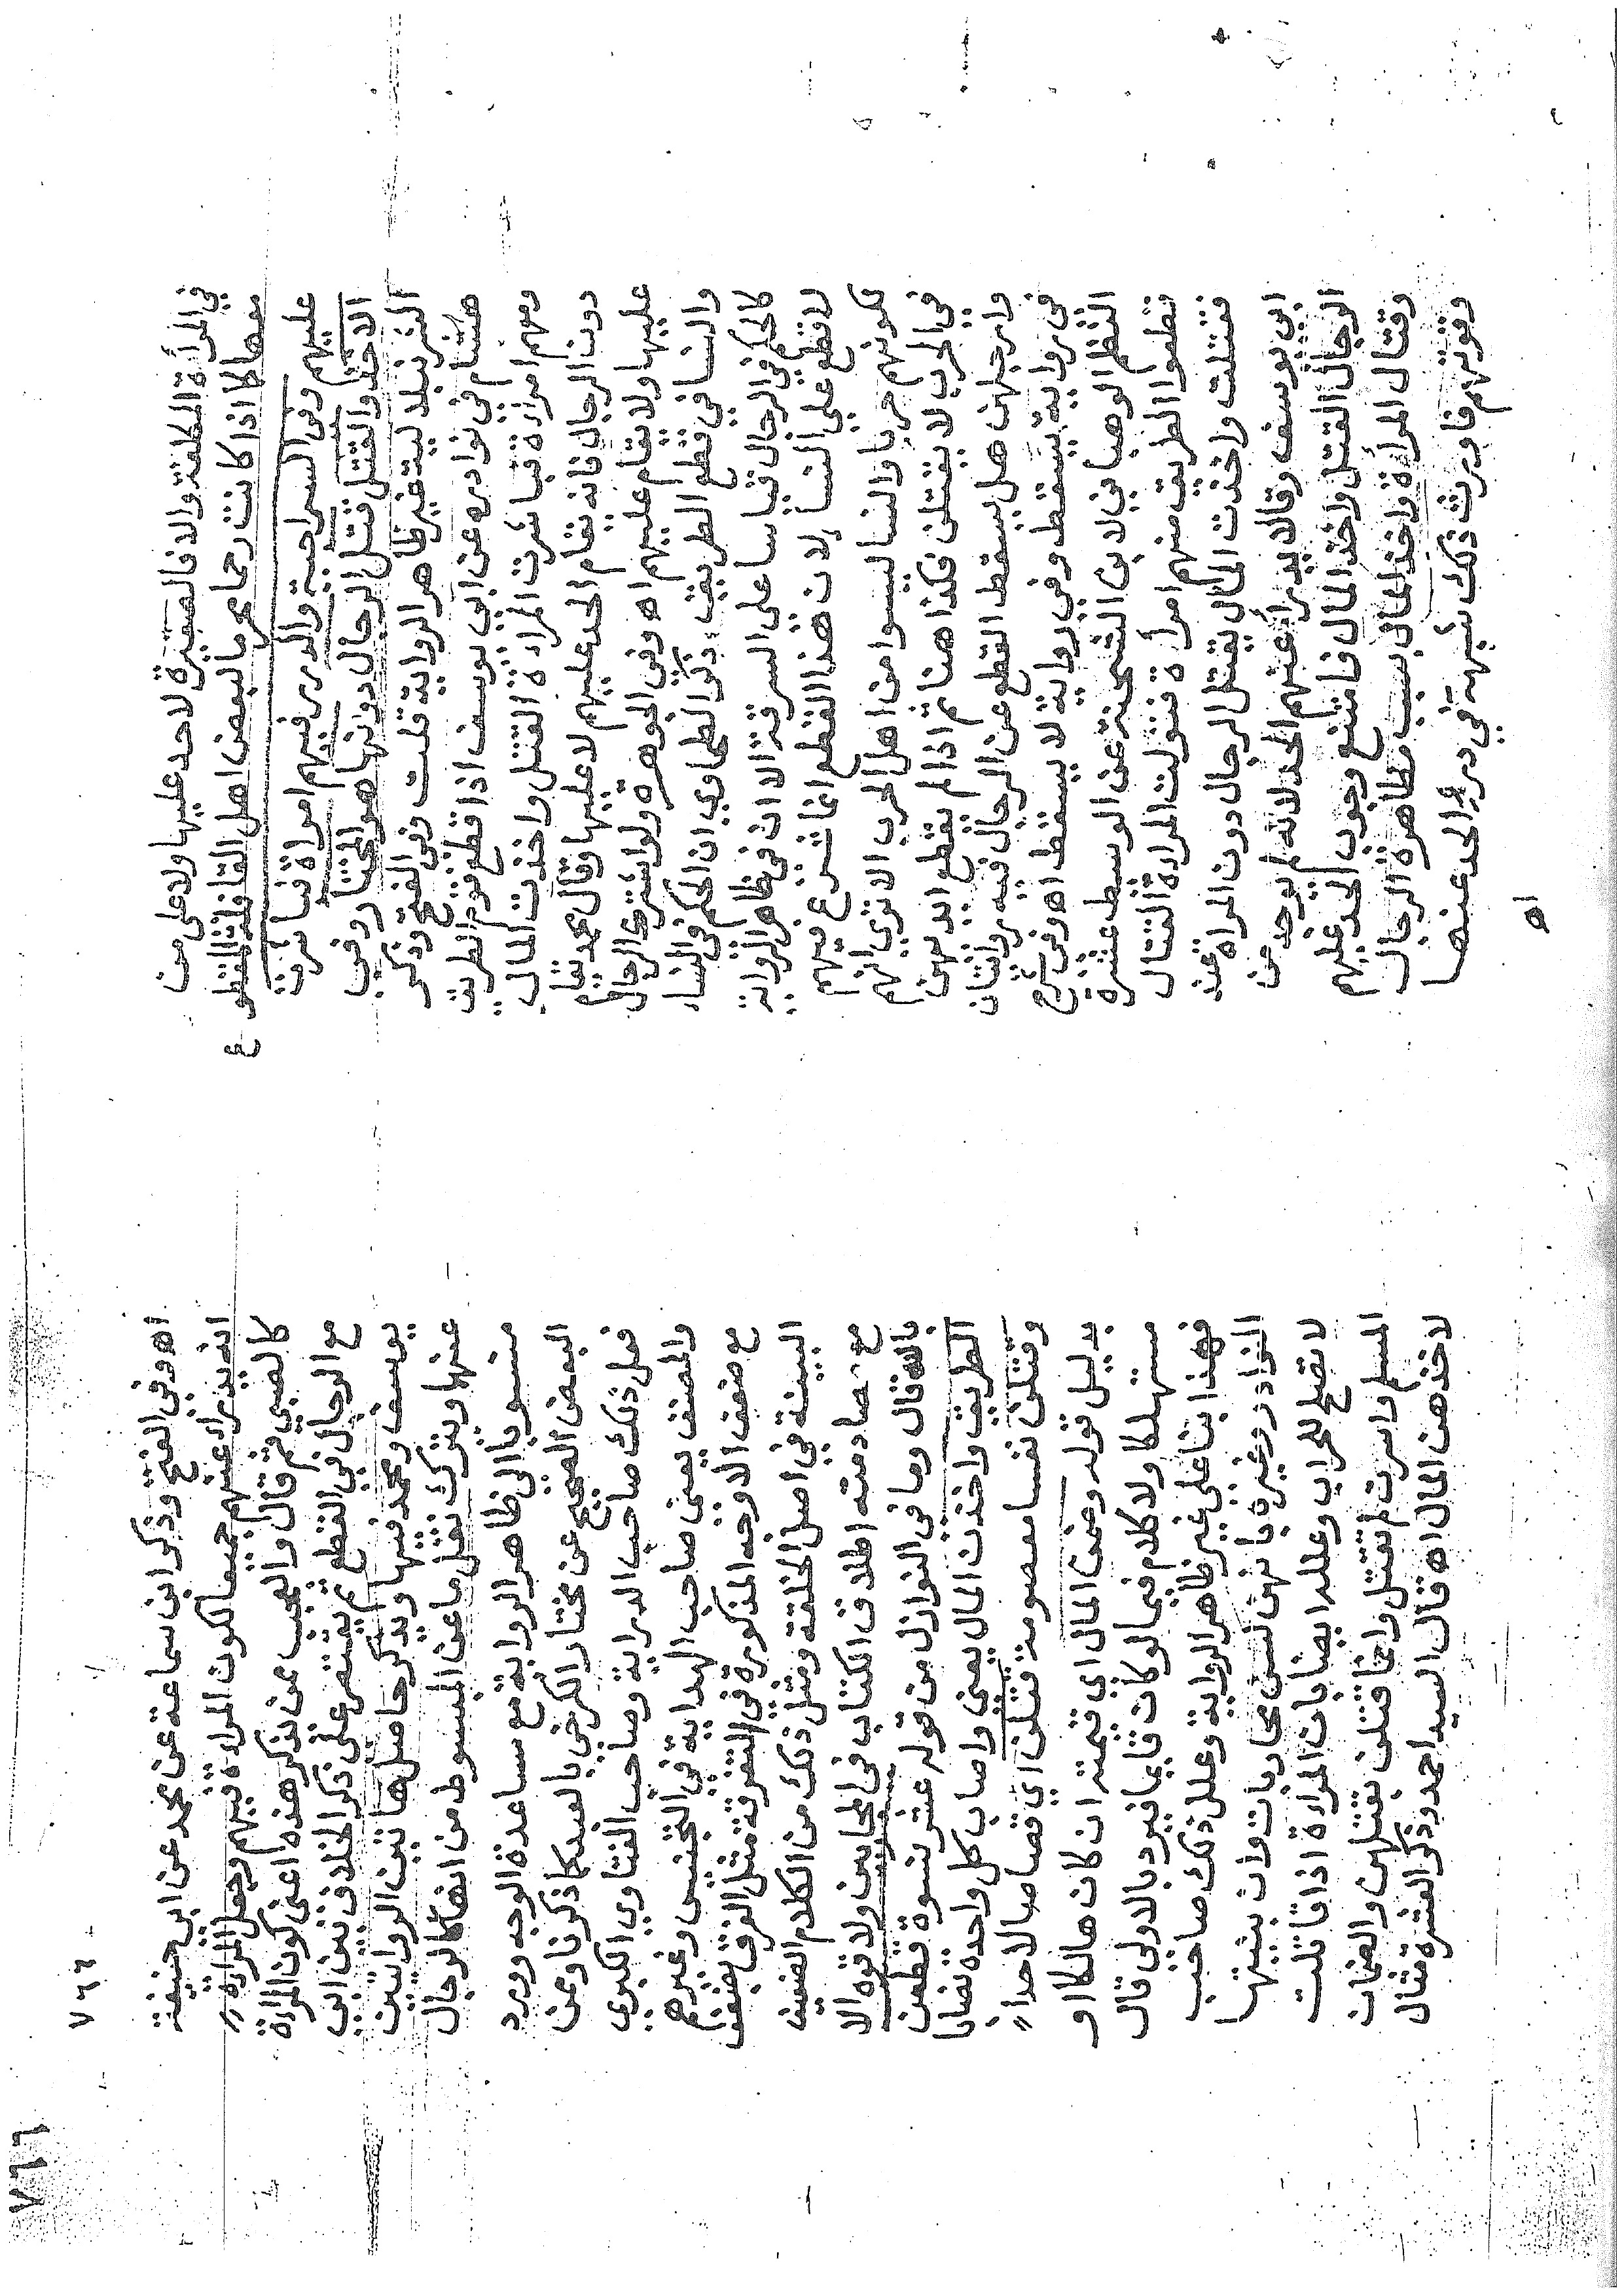 في المرأة المكلفة والا فالصغيرة لا حد عليها ولا على من
معها كما اذا كانت رحما محرما لبعض اهل القافلة المقطوع
عليهم وفي السراجية والدرر فيهم امراة فباشرت
الاخذ والقتل قتل الرجال دونها هو المختار وفي
الشرنبلالية غير ظاهر الرواية قلت وفي الفتح وذكر
هشام في نوادره عن ابي يوسف اذا قطع قوم الطريق
ومعهم امراءة فباشرت المراءة القتل واخذت المال
دون الرجال فانه يقام الحد عليهم لا عليها وقال محمد يقام
عليها ولا يقام عليهم اه وفي الجوهرة ولو اشترك الرجال
والنسا في قطع الطريق ذكر الطحاوي ان الحكم في النساء
كالحكم في الرجال قياسا على السرقة الا ان في ظاهر الرواية
لا قطع على النسا لان هذا القطع انما شرع فيهم
لكونهم حربا والنسا ليسوا من اهل الحرب الا ترى انهم
في الحرب لا يقتلن فكذا هنا ثم اذا لم يقطع ايديهن
وارجلهن هل يسقط القطع عن الرجال فيه روايتان
في رواية يسقط وفي رواية لا يسقط اه وفي شرح
النظم الوهباني لابن الشحنة عن الوسط عشرة
قطعوا الطريق منهم امرأة فتولت المراءة القتال
فقتلت واخذت المال يقتل الرجال دون المراة عند
ابي يوسف وقالا يدرأ عنهم الحد لانه لم يوجد من
الرجال القتل واخذ المال فامتنع وجوب الحد عليهم
وقتال المرأة واخذ المال بسبب مظاهرة الرجال
وقوتهم فاورث ذلك شبهة في درء الحد عنها
اه
٧٦٦
اه وفي الفتح وذكر ابن سماعة عن محمد عن ابي حنيفة
انه يدراء عنهم جميعا لكون المراءة فيهم وجعل المراءة
كالصبي ثم قال والعجب عن يذكر هذه اعنى كون المراءة
مع الرجال في القطع ثم يقتصر على ذكر الخلاف بين ابي
يوسف ومحمد فيها ويذكر حاصل ها تين الروايتين
عنها ويترك نقل ما عن المبسوط من انها كالرجال
منسوبا الى ظاهر الرواية مع مساعدة الوجه وورد
البعض الصحيح عن مختار الكرخي بالعبد كما ذكرنا وممن
فعل ذلك صاحب الدراية وصاحب الفتاوي الكبرى
والمصنف يعنى صاحب الهداية في التجنيس وغيرهم
مع ضعف الاوجه المذكورة في التفرقة مثل الفرق بضعف
البينة في اصل الخلقة ومثل ذلك من الكلام الضعيف
مع مصادمته اطلاق الكتاب في المحاربين ولا قوة الا
بالله قال وما في النوازل من قوله عشر نسوة قطعن
الطريق واخذت المال يعنى واصاب كل واحدة نصابا
وقتلن نفسا معصومة قتلن اي قصاصا لا حدا
بدليل قوله وضمن المال اي قيمته ان كان هالكا او
مستهلكا ولا كلام فيما لو كان قايما فيرد بالاولى قال
فهذا بنا على غير ظاهر الرواية وعلل ذلك صاحب
النوادر وغيره بانهن لسن محاربات وان بنيتها
لا تصلح للحراب وعلله ايضا بان المراءة اذا قاتلت
المسلم واسرت لم تقتل وانما قتلن بقتلهن والضمان
لاخذهن المال اه قال السيد احمد وذكر العشرة مثال
٧٦٦